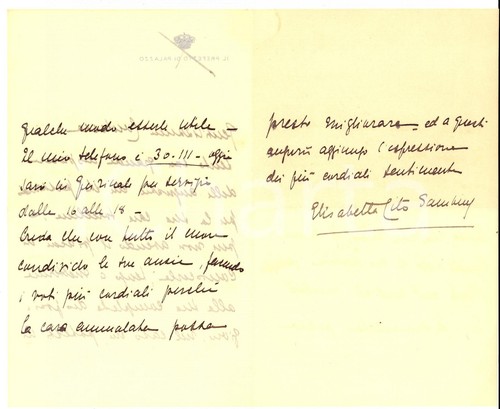 IL PREFETTO DI PALAZZO
qualche modo essere utile –
Il mio telefono è 30-111 – oggi
sarò in Quirinale per servizio
dalle 16 alle 18 –
Creda che con tutto il cuore
condivido le sue ansie, facendo
i voti più cordiali perchè
la cara ammalata possa
presto migliorare – ed a questi
auguri aggiungo l'espressione
dei più cordiali sentimenti
Elisabetta Cito